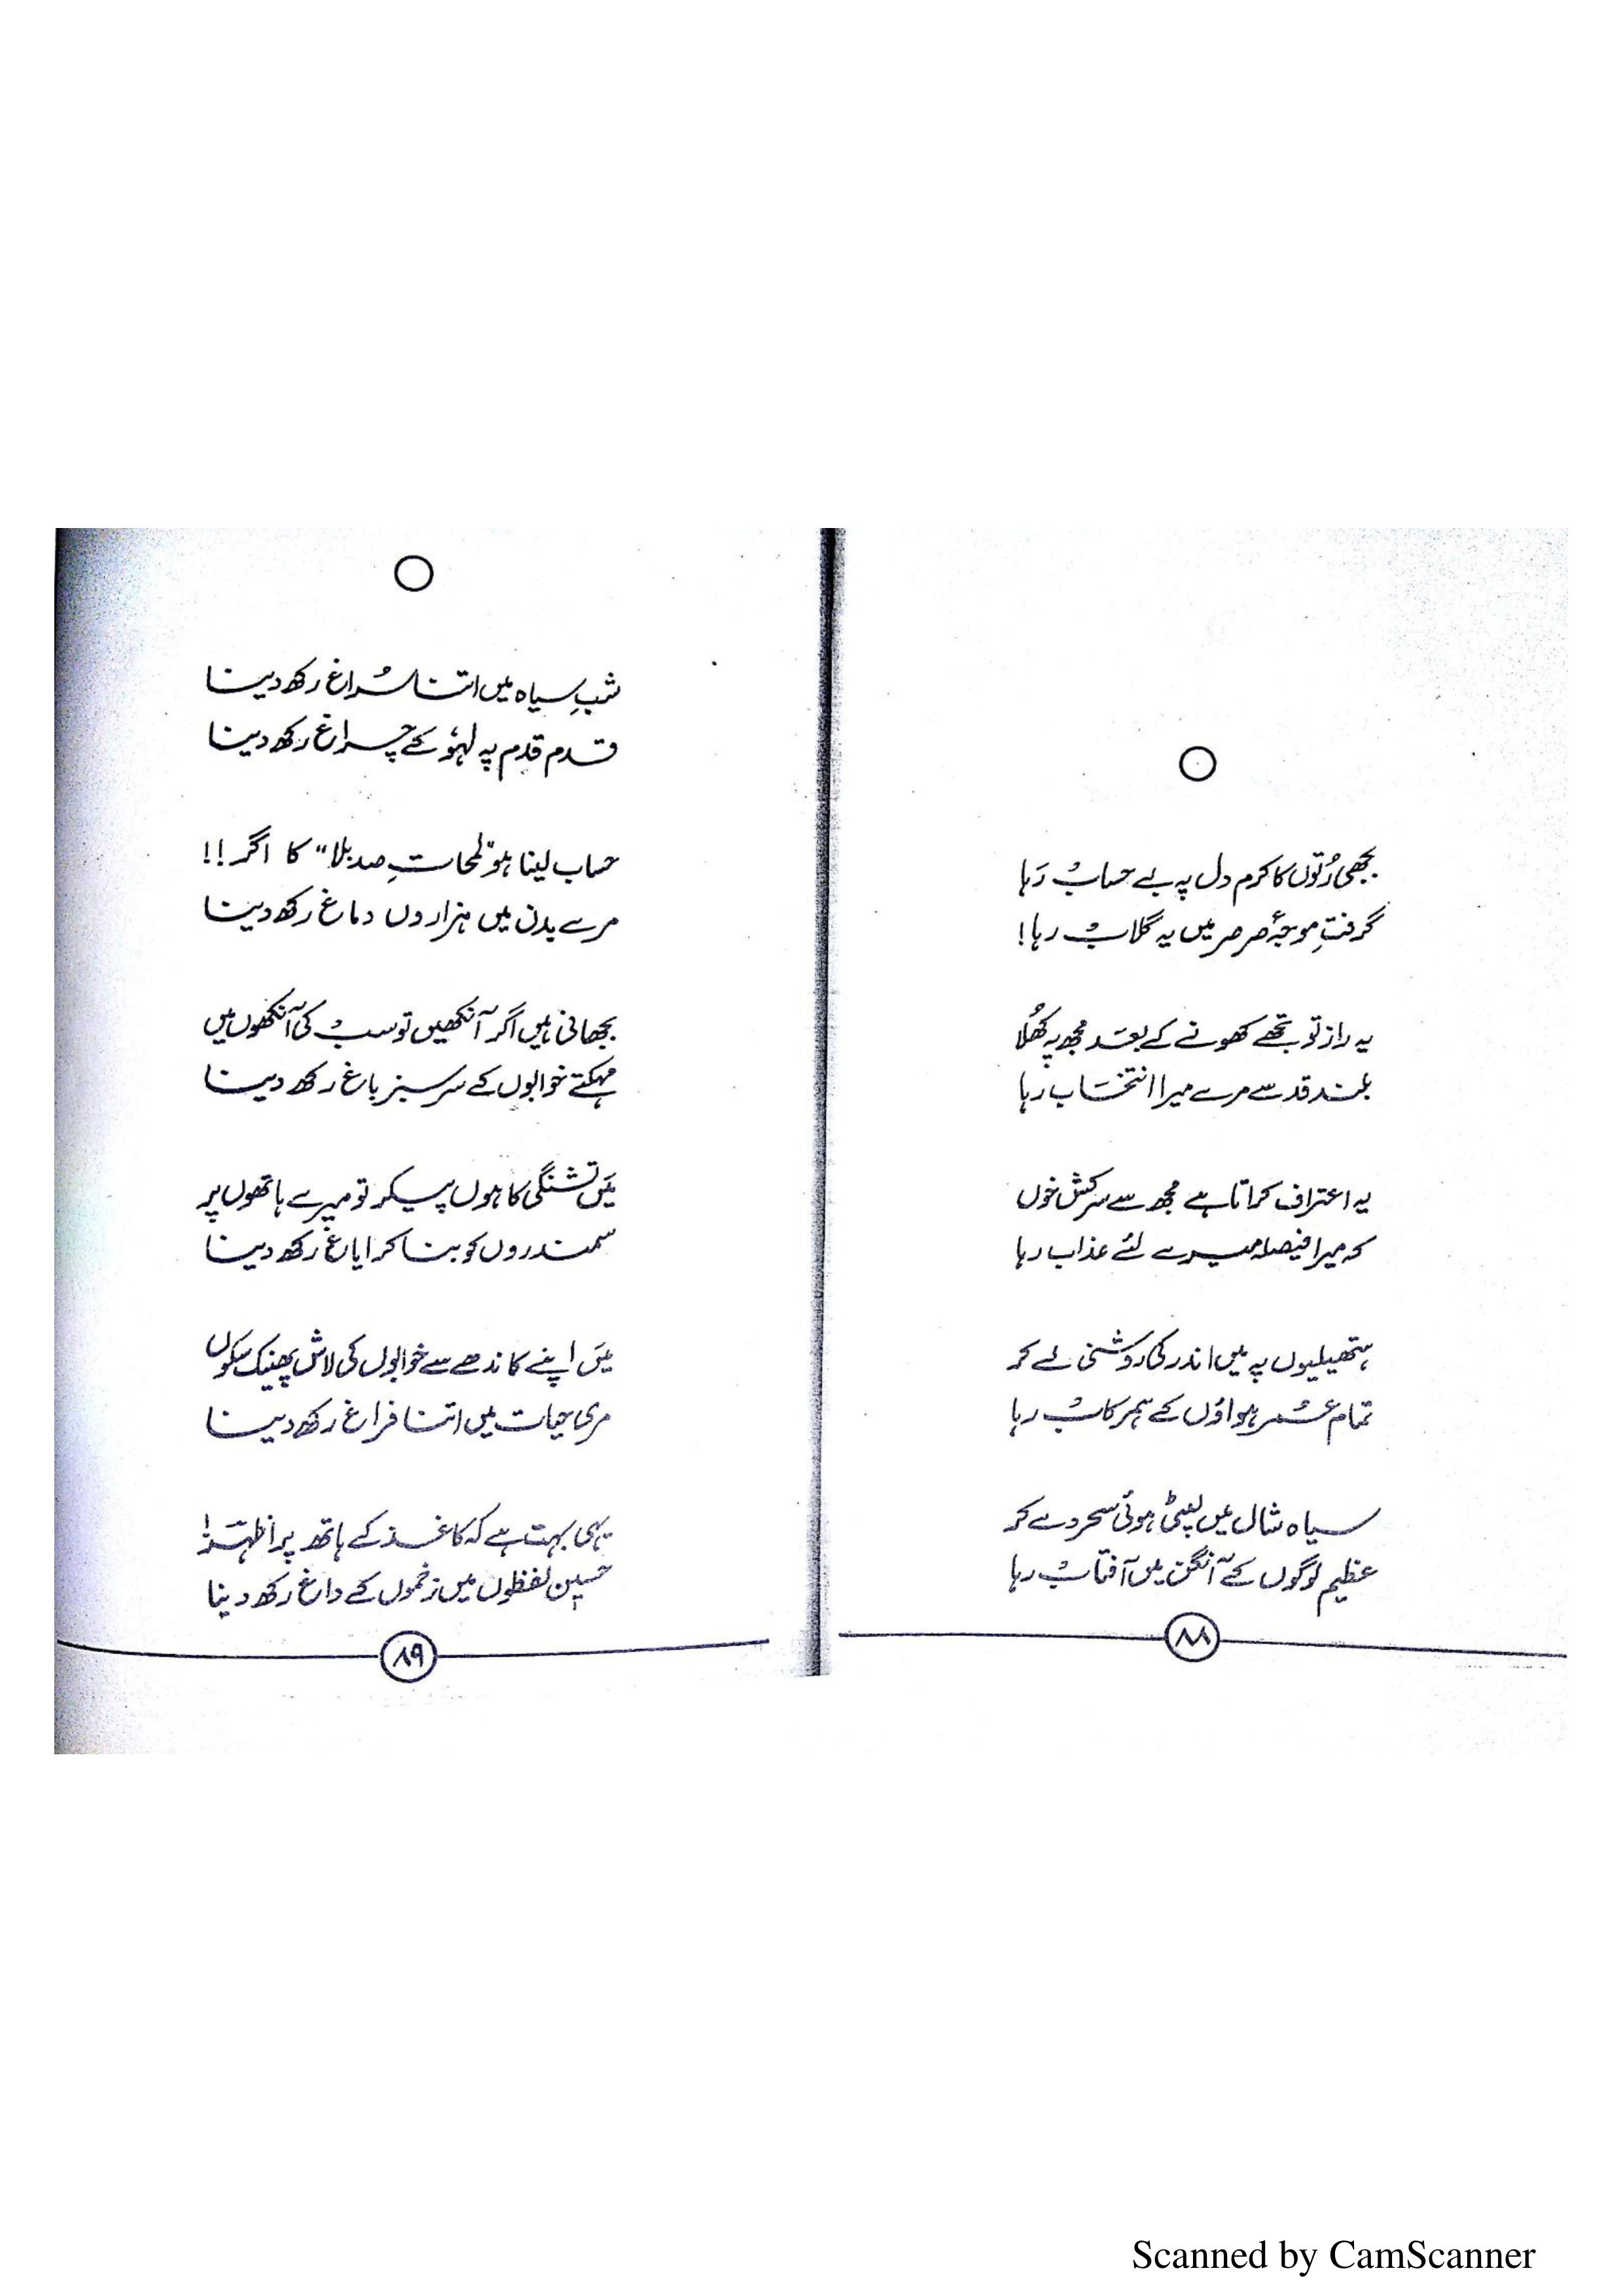 بجھی رُتوں کا کرم دل پہ بے حساب رَہا
گرفتِ موجۂ صرصر میں یہ گلاب رہا!
یہ راز تو تجھے کھونے کے بعد مجھ پہ کھُلا
بلند قد سے مرے میرا انتخاب رہا
یہ اعتراف کراتا ہے مجھ سے سرکش خوں
کہ میرا فیصلہ میرے لئے عذاب رہا
ہتھیلیوں پہ میں اندر کی روشنی لے کر
تمام عُمر ہواؤں کے ہمرکاب رہا
سیاہ شال میں لپٹی ہوئی سحر دے کر
عظیم لوگوں کے آنگن میں آفتاب رہا
۸۸
شبِ سیاہ میں اتنا سُراغ رکھ دینا
قدم قدم پہ لہوٗ کے چراغ رکھ دینا
حساب لینا ہو "لمحاتِ صد بلا" کا اگر!!
مرے بدن میں ہزاروں دماغ رکھ دینا
بجھانی ہیں اگر آنکھیں تو سب کی آنکھوں میں
مہکتے خوابوں کے سرسبز باغ رکھ دینا
میَں تشنگی کا ہوں پیکر تو میرے ہاتھوں پر
سمندروں کو بنا کر ایاغ رکھ دینا
میَں اپنے کاندھے سے خوابوں کی لاش پھینک سکوں
مری حیات میں اتنا فراغ رکھ دینا
یہی بہت ہے کہ کاغذ کے ہاتھ پر اظہرؔ!
حسین لفظوں میں زخموں کے داغ رکھ دینا
۸۹
Scanned by CamScanner